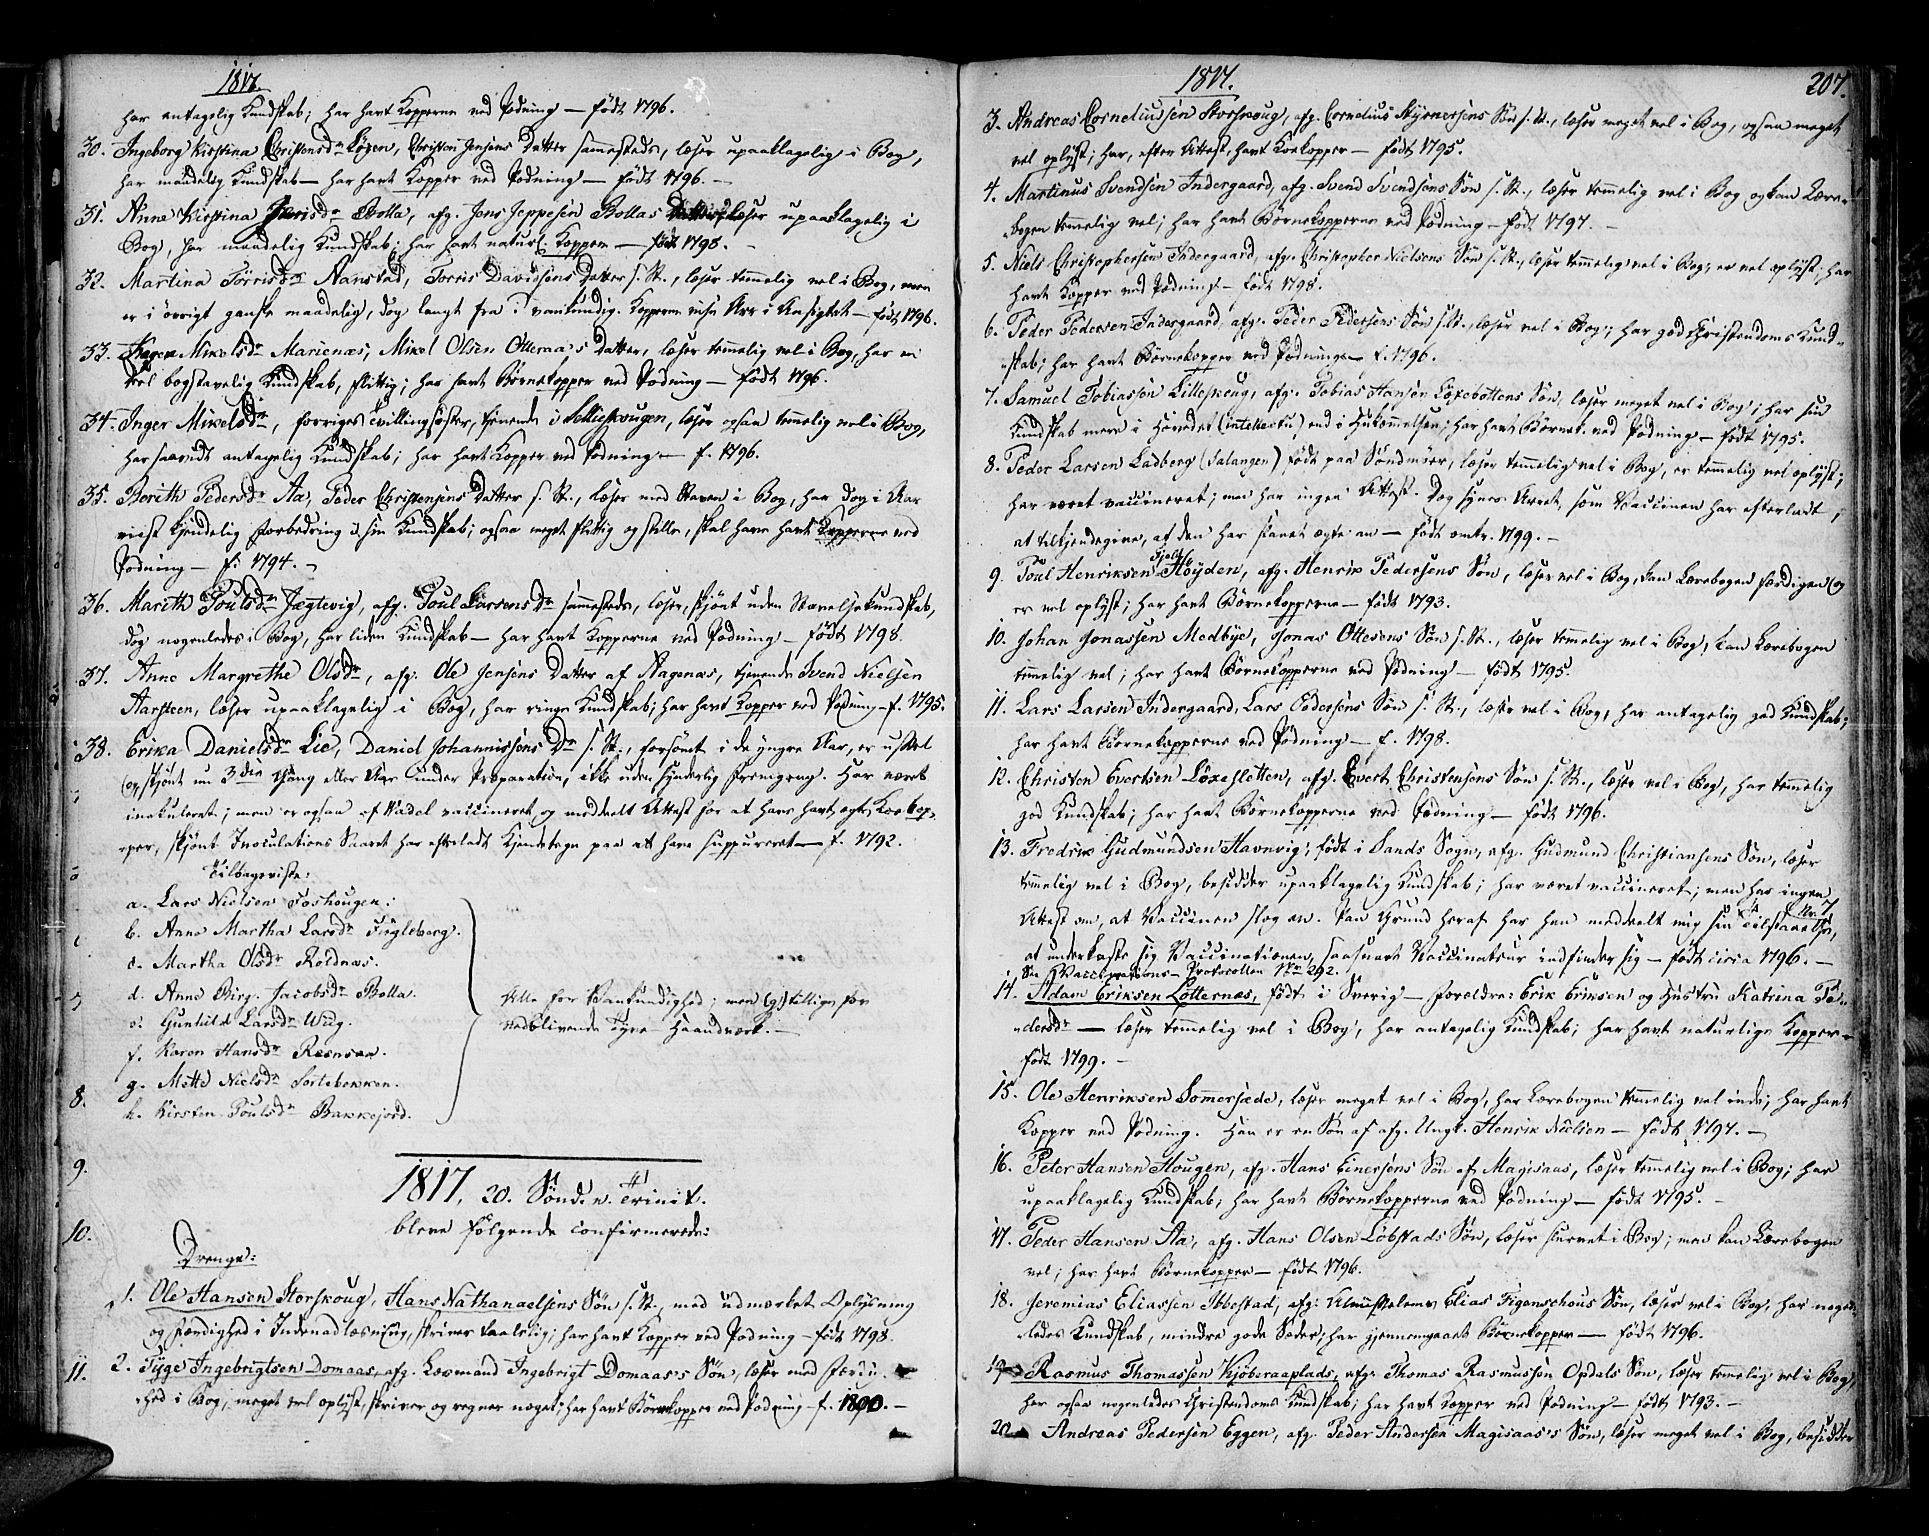 1817.
har antagelig Kundskab; har havt Kopperne ved Podning — født 1796.
30. Ingeborg Kirstina Christensdr Løxen, Christen Jensens Datter sammesteds, læser upaaklagelig i Bog,
har maadelig Kundskab — har havt Kopper ved Podning — født 1796. —
31. Anne Kirstina Bolla, afg. Jens Jeppesen Bollas læser upaaklagelig i
Bog, har maadelig Kundskab; har havt naturl. Kopper — født 1798. —
32. Martina Tørrisdr Aanstad, Torris Davidsens Datter s. St., læser temmelig vel i Bog, men
er i øvrigt ganske maadelig, dog langt fra vankundig. Kopperne vise Arr i Ansigtet — født 1796.
33. Karen Mikelsdr Marienæs, Mikel Olsen Otteraa's Datter, læser temmelig vel i Bog, har en
vel bogstavelig Kundskab, flittig; har havt Børnekopper ved Podning — født 1796.
34. Inger Mikelsdr, forriges Tvillingsøster, tienende i Solliskougen, læser ogsaa temmelig vel i Bog,
har saavidt antagelig Kundskab; har havt Kopper ved Podning — f. 1796.
35. Berith Pedersdr Aa, Peder Christensens Datter s. St., læser med Staven i Bog, har dog i Aar
viist kjendelig Forbedring i sin Kundskab; ogsaa meget flittig og stille, skal have havt Kopperne ved
Podning — f. 1794. —
36. Mareth Poulsdr Jægtevig, afg. Poul Larsens Dr sammesteds, læser, skjønt uden Stavelsekundskab,
dog nogenledes i Bog, har liden Kundskab — har havt Kopperne ved Podning — født 1798.
37. Anne Margrethe Olsdr, afg. Ole Jensens Datter af Aagenæs, tjenende Svend Nielsen
Aarsteen, læser upaaklagelig i Bog, har ringe Kundskab; har havt Kopper ved Podning — f. 1795.
38. Erika Danielsdr Lie, Daniel Johannissens Dr s. St., forsømt i de yngre Aar, er ussel
(og skjønt nu 3die Gang eller Aar under Præparation, ikke uden synderlig Fremgang. Har været
inokuleret; men er ogsaa af Wadel vaccineret og meddeelt Attest for at have havt ægte Koekop-
per, skjønt Inoculations Saaret har efterladt Kjendetegn paa at have suppureret — f. 1792.
Tilbageviste:
a. Lars Nielsen Foshougen.
b. Anne Martha Larsdr Fugleberg.
c. Martha Olsdr Roldnæs.
d. Anne Birg. Jacobsdr Bolla.
e. Gunhild Larsdr Wiig.
f. Karen Hansdr Reensaa.
g. Mette Nielsdr Sortebekken.
h. Kirsten Poulsdr Bakkejord.
Alle for Vankundighed; men (g) tillige for
vedblivende Haandværk. —
8.
9.
10.
11.
1817, 20. Sønd. n. Trinit.
bleve følgende confirmerede:
Drenge:
1. Ole Hansen Storskoug, Hans Nathanaelsens Søn s. St., med udmærket Oplysning
og Færdighed i Indenadlæsning, skriver taalelig; har havt Kopper ved Podning — født 1798.
2. Tyge Ingebrigtsen Domaas, afg. Leexmand Ingebrigt Domaas's Søn, læser med Færdig-
hed i Bog, meget vel oplyst, skriver og regner noget; har havt Børnekopper ved Podning — f. 1800. —
1817.
207.
3. Andreas Corneliussen Storskoug, afg. Cornelius Styrmersens Søn s. St., læser meget vel i Bog, ogsaa meget
vel oplyst; har, efter Attest, havt Koekopper — født 1795.
4. Martinus Svendsen Indergaard, afg. Svend Svendsens Søn s. St., læser temmelig vel i Bog og kan Lære-
bogen temmelig vel; har havt Børnekopperne ved Podning — født 1797. —
5. Niels Christophersen Indergaard, afg. Christopher Nielsens Søn s. St., læser temmelig vel i Bog; er vel oplyst; har
havt Kopper ved Podning — født 1798.
6. Peder Pedersen Indergaard, afg. Peder Pedersens Søn s. St., læser vel i Bog; har god Christendoms Kund-
skab; har havt Børnekopper ved Podning — f. 1796.
7. Samuel Tobiassen Lilleskoug, afg. Tobias Hansen Løxebottens Søn, læser meget vel i Bog; har sin
Kundskab mere i Hovedet (intellectu) end i Hukommelsen; har havt Børnek. ved Podning — født 1795.
8. Peder Larsen Ladberg (Salangen) født paa Søndmøer, læser temmelig vel i Bog, er temmelig vel oplyst;
har været vaccineret; men har ingen Attest. Dog synes Arret, som Vaccinen har efterladt,
at tilkjendegive, at den har slaaet ægte an — født omtr. 1799. —
9. Poul Henriksen Fjeld Høyden, afg. Henrik Pedersens Søn, læser vel i Bog, kan Lærebogen færdigen og
er vel oplyst; har havt Børnekopperne — født 1793.
10. Johan Jonassen Medbye, Jonas Ottesens Søn s. St., læser temmelig vel i Bog, kan Lærebogen
temmelig vel; har havt Børnekopperne ved Podning — født 1795.
11. Lars Larsen Indergaard, Lars Pedersens Søn s. St., læser vel i Bog, har antagelig god Kundskab;
har havt Børnekopperne ved Podning — f. 1798.
12. Christen Evertsen Løxesletten, afg. Evert Christensens Søn s. St., læser vel i Bog, har temmelig
god Kundskab; har havt Børnekopperne ved Podning — født 1796.
13. Fredrik Gudmundsen Havnvig, født i Sands Sogn, afg. Gudmund Christiansens Søn, læser
temmelig vel i Bog, besidder upaaklagelig Kundskab; har været vaccineret; men har ingen
Attest om, at Vaccinen slog an. Paa Grund heraf har han meddeelt mig sin Tilstaaelse,
at underkaste sig Vaccinationen, saasnart Vaccinateur indfinder sig — født circa 1796. —
Se Vaccinations-Protocollen No 292.
14. Adam Eriksen Løtternæs, født i Sverig — Forældre: Erik Eriksen og Hustru Katrina Pe-
dersdr — læser temmelig vel i Bog, har antagelig Kundskab; har havt naturlige Kopper —
født 1799. —
15. Ole Henriksen Sommersæde, læser meget vel i Bog, har Lærebogen temmelig vel inde; har havt
Kopper ved Podning. Han er en Søn af afg. Ungk. Henrik Nielsen — født 1797. —
16. Peter Hansen Hougen, afg. Hans Einersens Søn af Magisaas, læser temmelig vel i Bog; har
upaaklagelig Kundskab; har havt Børnekopperne ved Podning — født 1795. —
17. Peder Hansen Aa, afg. Hans Olsen Løbstads Søn, læser stavet i Bog; men kan Lærebogen
vel; har havt Børnekopper — født 1796.
18. Jeremias Eliassen Ibbestad, afg. Almisselem Elias Figenschous Søn, læser vel i Bog, har nogen-
ledes Kundskab, mindre gode Sæder; har gjennemgaaet Børnekopper — født 1796.
19. Rasmus Thomassen Kjøberaaplads, afg. Thomas Rasmussen Opdals Søn, læser temelig vel i Bog,
har ogsaa nogenledes Christendoms Kundskab; har havt Kopper ved Podning — født 1793. —
20. Andreas Pedersen Eggen, afg. Peder Andersen Magisaas's Søn, læser meget vel i Bog, besidder